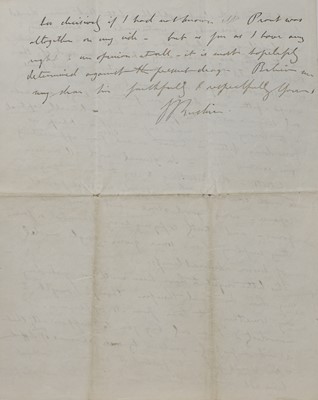 so decisively if I had not known Mr Prout was
altogether on my side - but as far as I have any
right to an opinion at all - it is most hopelessly
determined against the present design. Believe me
my dear Sir faithfully & respectfully Yours,
J Ruskin